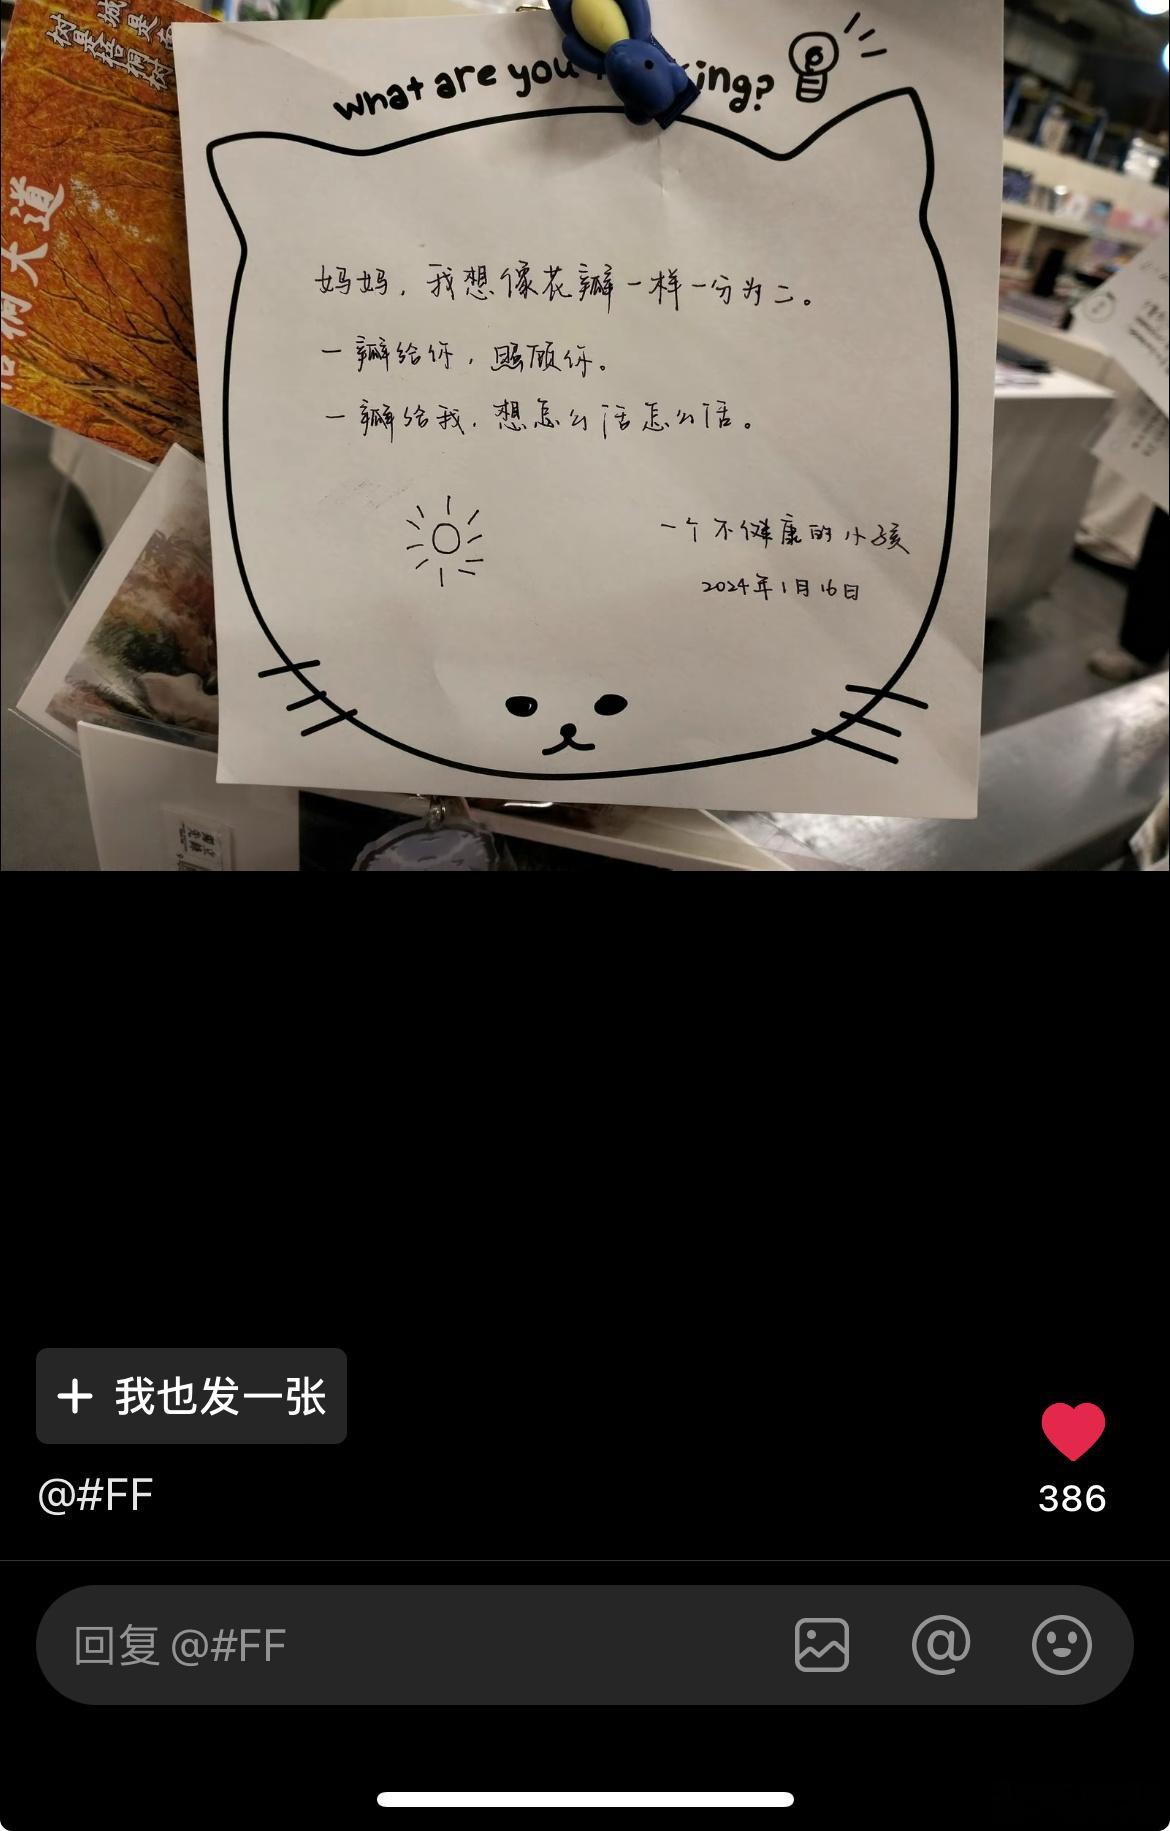 what are you king?
妈妈，我想像花瓣一样一分为二。
一瓣给你，照顾你。
一瓣给我，想怎么活怎么活。
一个不健康的小孩
2024年1月16日
大道
我也发一张
@#FF
386
回复 @#FF